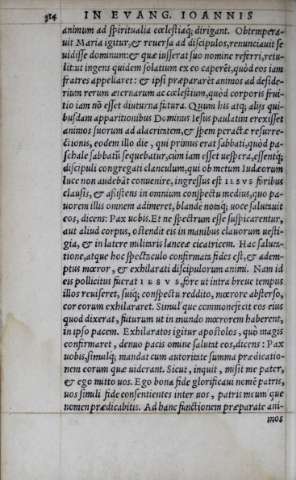 314 IN EVANG. IOANNIS
animum ad spiritualia cœlestiaq; dirigant. Obtempera-
uit Maria igitur, & reuersa ad discipulos, renunciauit se
uidisse dominum: & quæ iusserat suo nomine referri, retu-
lit: ut ingens quidem solatium ex eo caperēt, quòd eos iam
fratres appellaret: & ipsi præpararēt animos ad deside-
rium rerum æternarum ac cœlestium, quòd corporis frui-
tio iam nō esset diuturna futura. Quum his atq; alijs qui-
busdam apparitionibus Dominus Iesus paulatim erexisset
animos suorum ad alacritatem, & spem peractæ resurre-
ctionis, eodem illo die, qui primus erat sabbati, quòd pa-
schale sabbati sequebatur, cùm iam esset uespera, essentq́;
discipuli congregati clanculum, qui ob metum Iudæorum
luce non audebāt conuenire, ingressus est IESVS foribus
clausis, & assistens in omnium conspectu medius, quo pa-
uorem illis omnem adimeret, blande notāq; uoce salutauit
eos, dicens: Pax uobis. Et ne spectrum esse suspicarentur,
aut aliud corpus, ostendit eis in manibus clauorum uesti-
gia, & in latere militaris lanceæ cicatricem. Hac saluta-
tione, atque hoc spectaculo confirmata fides est, & adem-
ptus mœror, & exhilarati discipulorum animi. Nam id
eis pollicitus fuerat IESVS, fore ut intra breue tempus
illos reuiseret, suiq́; conspectu reddito, mœrore absterso,
cor eorum exhilararet. Simul que commonefecit eos eius
quod dixerat, futurum ut in mundo mœrorem haberent,
in ipso pacem. Exhilaratos igitur apostolos, quò magis
confirmaret, denuo pacis omine saluit eos, dicens: Pax
uobis, simulq; mandat cum autoritate summa prædicatio-
nem eorum quæ uiderant. Sicut, inquit, misit me pater,
& ego mitto uos. Ego bona fide glorificaui nomē patris,
uos simili fide consentientes inter uos, patris meum que
nomen prædicabitis. Ad hanc functionem præparate ani-
mos